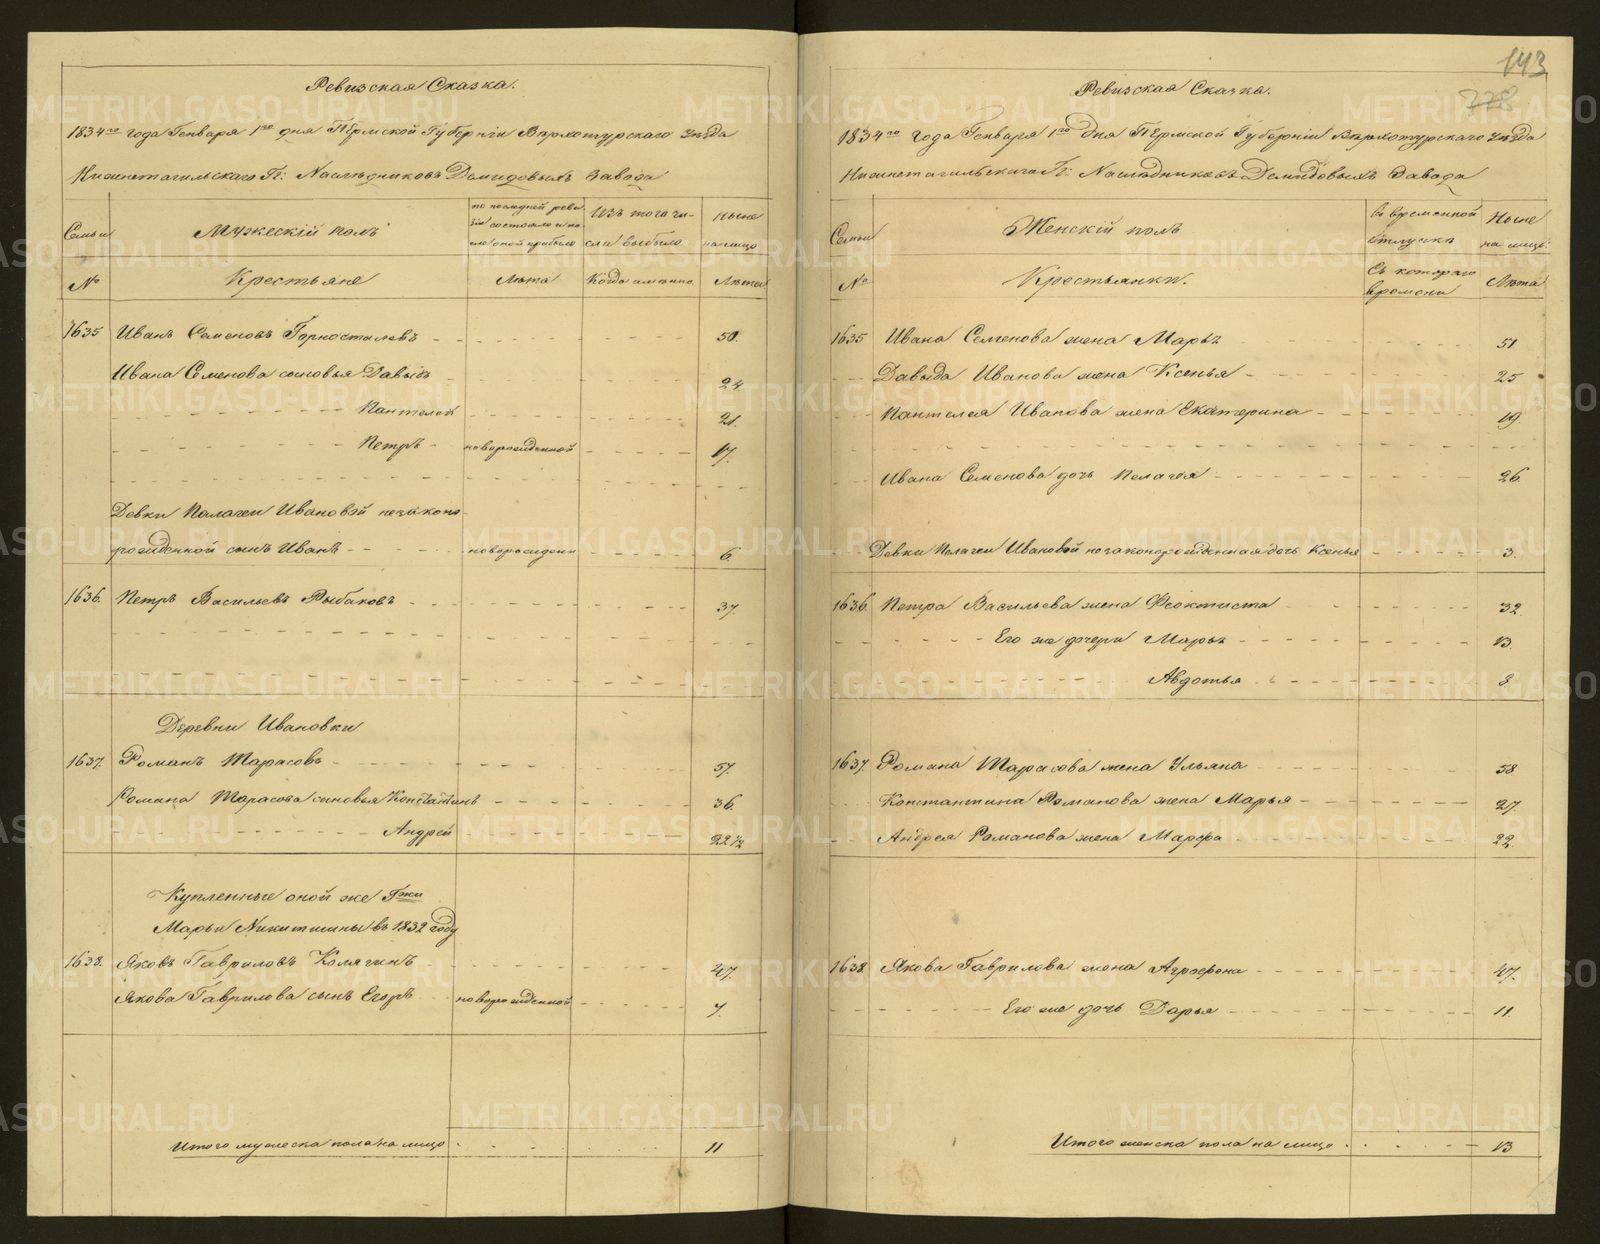 Ревизская Сказка.
1834го года Генваря 1го дня Пермской Губернiи Верхотурскаго уѣзда
Нижнетагильскаго Г: Наслѣдниковъ Демидовыхъ Завода
Семьи
Мужескiй полъ
по последней реви-
зiи состояло и по-
слѣ оной прибыло
Изъ того чи-
сла выбыло
Ныне
на лицо
№
Крестьяне
Лѣта
Когда имянно
Лѣта
1635 Иванъ Семеновъ Горносталевъ 50.
Ивана Семенова сыновья Давыдъ 24
Пантелей 21.
Петръ новорожденной 17.
Девки Пелагеи Ивановой незаконо-
рожденной сынъ Иванъ новорожденн 6.
1636. Петръ Васильевъ Рыбаковъ 37.
Деревни Ивановки
1637. Романъ Тарасовъ 57.
Романа Тарасова сыновья Констатинъ 36.
Андрей 22 1/2
Купленные оной же Гжи
Марьи Никитишны въ 1832 году
1638. Яковъ Гавриловъ Колягинъ 47.
Якова Гаврилова сынъ Егоръ новорожденной 7.
Итого мужеска пола на лицо 11
143
778
Ревизская Сказка.
1834го года Генваря 1го дня Пермской Губернiи Верхотурскаго уѣзда
Нижнетагильскаго Г: Наслѣдниковъ Демидовыхъ Завода
Семьи
Женскiй полъ
въ временной
отлучкѣ
Ныне
на лицо:
№
Крестьянки.
Съ котораго
времени
Лѣта
1635 Ивана Семенова жена Марья 51
Давыда Иванова жена Ксенья 25
Пантелея Иванова жена Екатерина 19.
Ивана Семенова дочь Пелагея 26
Девки Пелагеи Ивановой незаконорожденная дочь Ксенья 3.
1636. Петра Васильева жена Феоктиста 32
Его же дочери Марья 13.
Авдотья 8
1637. Романа Тарасова жена Ульяна 58
Константина Романова жена Марья 27
Андрея Романова жена Марфа 22.
1638 Якова Гаврилова жена Агрофена 47.
Его же дочь Дарья 11.
Итого женска пола на лицо 13
METRIKI.GASO-URAL.RU